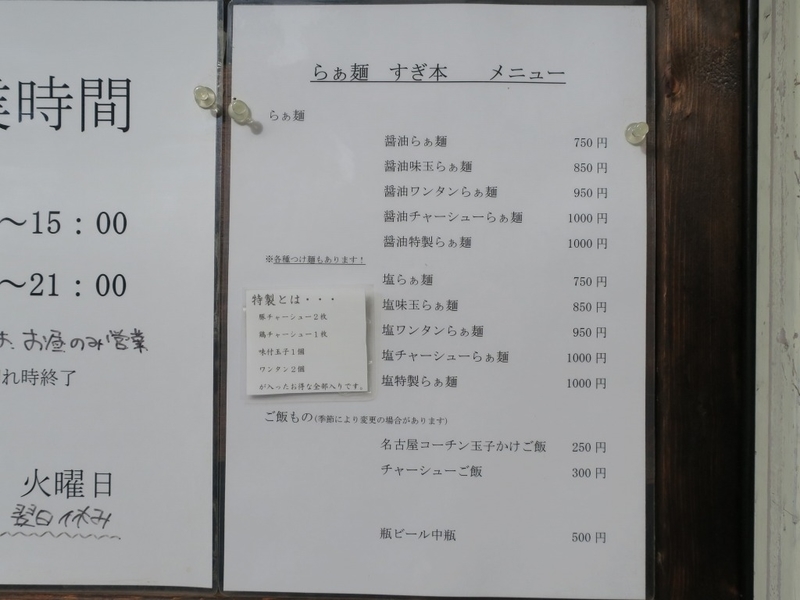 業時間
～15：00
～21：00
お昼のみ営業
れ時終了
火曜日
翌日休み
らぁ麺　すぎ本　　メニュー
らぁ麺
醤油らぁ麺 750 円
醤油味玉らぁ麺 850 円
醤油ワンタンらぁ麺 950 円
醤油チャーシューらぁ麺 1000 円
醤油特製らぁ麺 1000 円
※各種つけ麺もあります！
塩らぁ麺 750 円
塩味玉らぁ麺 850 円
塩ワンタンらぁ麺 950 円
塩チャーシューらぁ麺 1000 円
塩特製らぁ麺 1000 円
特製とは・・・
豚チャーシュー２枚
鶏チャーシュー１枚
味付玉子１個
ワンタン２個
が入ったお得な全部入りです。
ご飯もの(季節により変更の場合があります)
名古屋コーチン玉子かけご飯 250 円
チャーシューご飯 300 円
瓶ビール中瓶 500 円